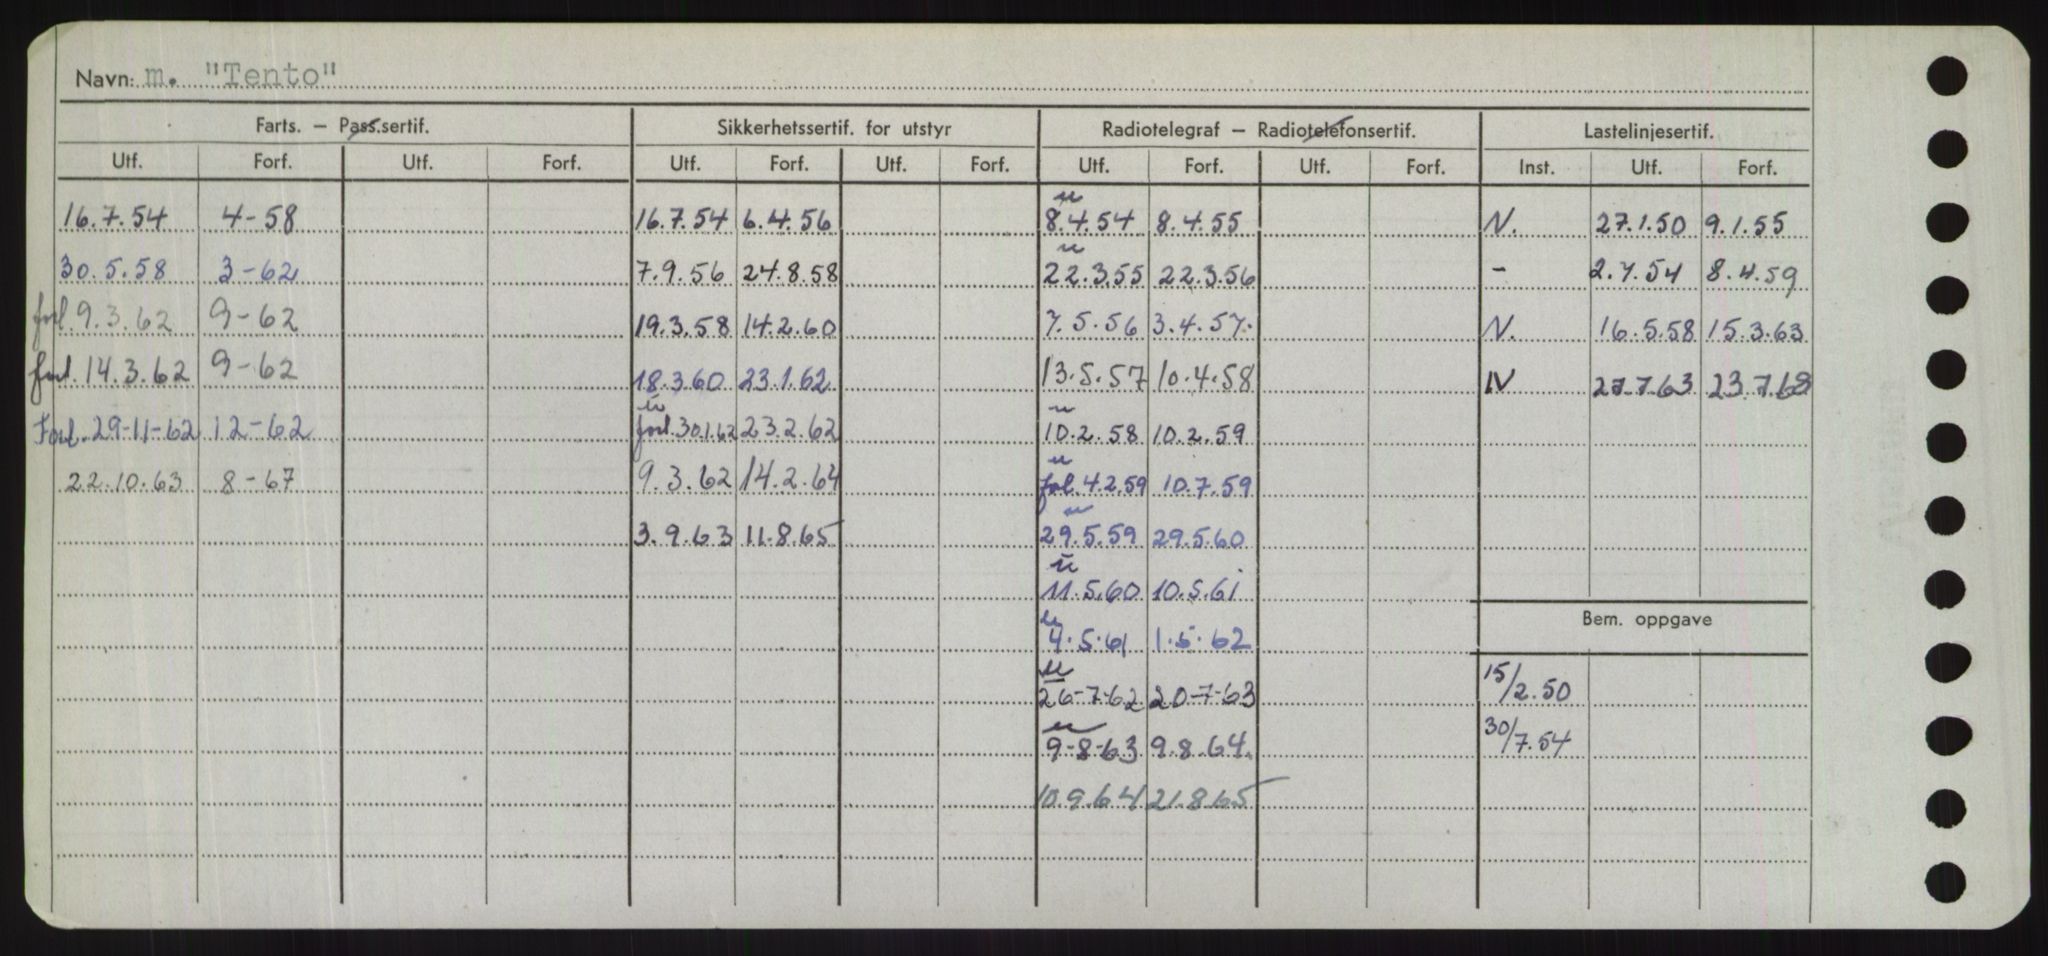 Navn: m. "Tento"
Farts. – Pass.sertif. Sikkerhetssertif. for utstyr Radiotelegraf – Radiotelefonsertif. Lastelinjesertif.
Utf. Forf. Utf. Forf. Utf. Forf. Utf. Forf. Utf. Forf. Utf. Forf. Inst. Utf. Forf.
u
16.7.54 4-58 16.7.54 6.4.56 8.4.54 8.4.55 N. 27.1.50 9.1.55
u
30.5.58 3-62 7.9.56 24.8.58 22.3.55 22.3.56 - 2.7.54 8.4.59
forl. 9.3.62 9-62 19.3.58 14.2.60 7.5.56 3.4.57. N. 16.5.58 15.3.63
forl. 14.3.62 9-62 18.3.60 23.1.62 13.5.57 10.4.58 N 27.7.63 23.7.68
u u
Forl. 29-11-62 12-62 forl. 30.1.62 23.2.62 10.2.58 10.2.59
u
22.10.63 8-67 9.3.62 14.2.64 fol. 4.2.59 10.7.59
u
3.9.63 11.8.65 29.5.59 29.5.60
u
11.5.60 10.5.61
u
4.5.61 1.5.62
Bem. oppgave
u
26-7-62 20-7-63 15/2.50
u
9-8-63 9.8.64. 30/7.54
10.9.64 21.8.65